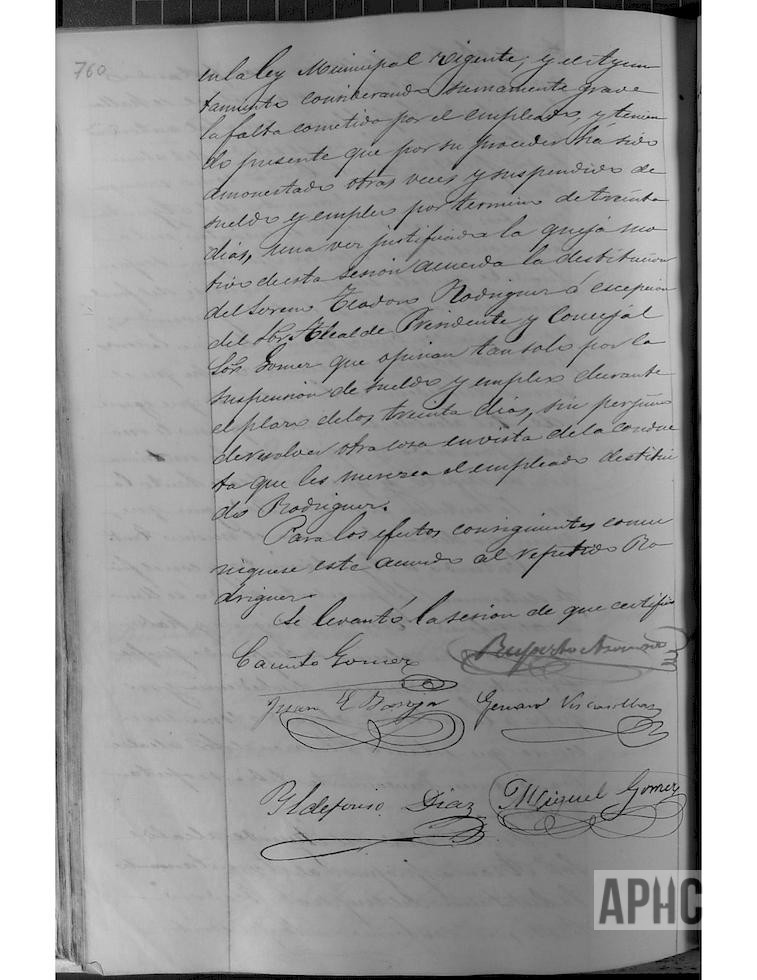 760
en la ley Municipal vigente; y el Ayun
tamiento considerando sumamente grave
la falta cometida por el empleado, y tenien
do presente que por su proceder há sido
amonestado otras veces y suspendido de
sueldo y empleo por termino de treinta
dias, una vez justificada la queja mo
tivo de esta sesion acuerda la destitucion
del Sereno Teodoro Rodriguez á escepcion
del Sor. Alcalde Presidente y Concejal
Sor. Gomez que opinan tan solo por la
suspension de sueldo y empleo durante
el plazo de los treinta dias, sin perjuicio
de resolver otra cosa en vista de la conduc
ta que les merezca el empleado destitui
do Rodriguez.
Para los efectos consiguientes comu
niquese este acuerdo al repetido Ro
driguez.
Se levantó la sesion de que certifico
Camilo Gomez Ruperto
Juan E Genaro
Yldefonso Diaz Miguel Gomez
APHC